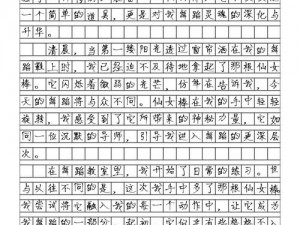 一个简单的道具，更是对我舞蹈灵魂的深化与
升华。
清晨，当第一缕阳光透过窗帘洒在我的舞
蹈鞋上时，我已经迫不及待地拿起了那根仙女
棒。它闪烁着微弱的光芒，仿佛在告诉我，今
天的舞蹈将与众不同。仙女棒在我的手中轻轻
旋转，我感受到了它所带来的神秘力量，它如
同一位沉默的导师，引导我进入舞蹈的更深层
次。
在舞蹈教室里，我开始了日常的练习。但
与以往不同的是，这次我手中多了那根仙女棒。
我尝试将它融入我的每一个动作中，让它成为
我舞蹈的一部分。起初，它似乎有些格格不入